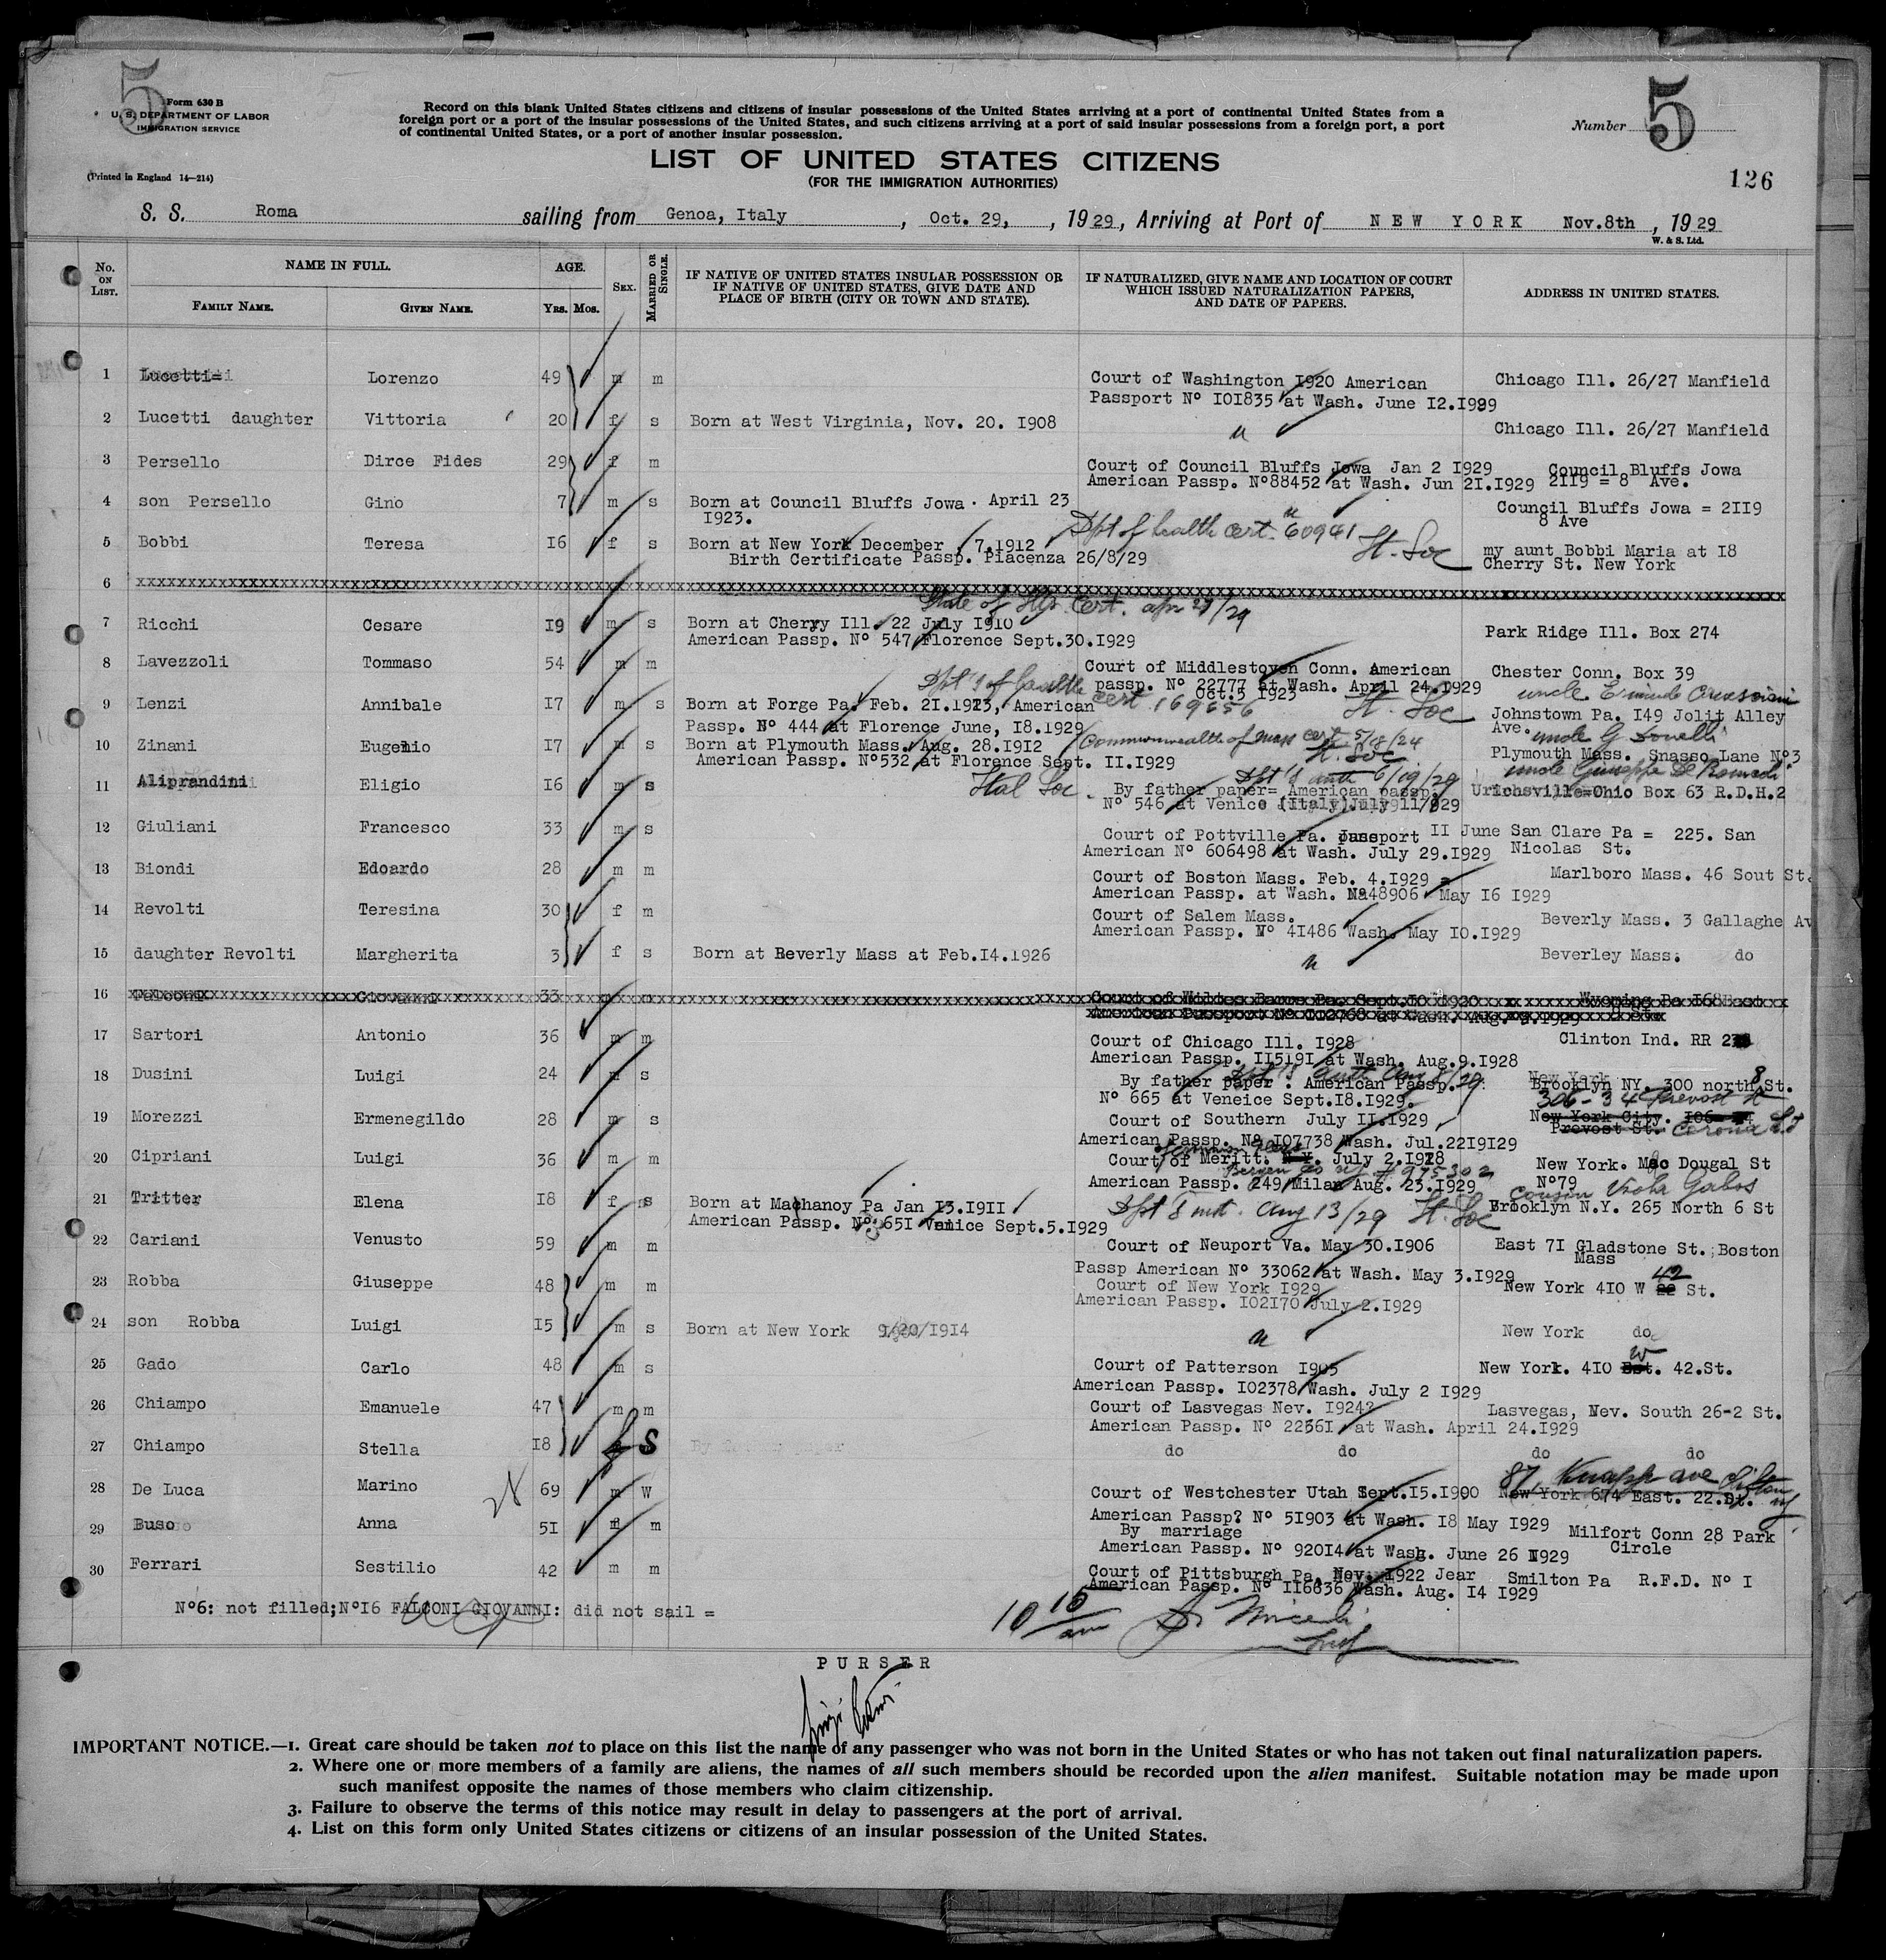 5
Form 630 B
U. S. DEPARTMENT OF LABOR
IMMIGRATION SERVICE
(Printed in England 14—214)
Record on this blank United States citizens and citizens of insular possessions of the United States arriving at a port of continental United States from a
foreign port or a port of the insular possessions of the United States, and such citizens arriving at a port of said insular possessions from a foreign port, a port
of continental United States, or a port of another insular possession.
Number 5
LIST OF UNITED STATES CITIZENS
(FOR THE IMMIGRATION AUTHORITIES)
126
S. S. Roma sailing from Genoa, Italy, Oct. 29, , 1929, Arriving at Port of NEW YORK Nov.8th, 1929
W. & S. Ltd.
No. ON LIST. NAME IN FULL. FAMILY NAME. GIVEN NAME. AGE. YRS. MOS. SEX. MARRIED OR SINGLE.
IF NATIVE OF UNITED STATES INSULAR POSSESSION OR IF NATIVE OF UNITED STATES, GIVE DATE AND PLACE OF BIRTH (CITY OR TOWN AND STATE).
IF NATURALIZED, GIVE NAME AND LOCATION OF COURT WHICH ISSUED NATURALIZATION PAPERS, AND DATE OF PAPERS.
ADDRESS IN UNITED STATES.
1 Lucetti= Lorenzo 49 m m Court of Washington I920 American Chicago Ill. 26/27 Manfield
Passport Nº I0I835 at Wash. June I2.I929
2 Lucetti daughter Vittoria 20 f s Born at West Virginia, Nov. 20. I908 " Chicago Ill. 26/27 Manfield
3 Persello Dirce Fides 29 f m Court of Council Bluffs Jowa Jan 2 I929 Council Bluffs Jowa
American Passp. Nº88452 at Wash. Jun 2I.I929 2II9 = 8 Ave.
4 son Persello Gino 7 m s Born at Council Bluffs Jowa. April 23 " Council Bluffs Jowa = 2II9
I923. 8 Ave
5 Bobbi Teresa I6 f s Born at New York December 7.I9I2 Dpt of health cert. 60941 St. Soc my aunt Bobbi Maria at I8
Birth Certificate Passp. Piacenza 26/8/29 Cherry St. New York
6 xxxxxxxxxxxxxxxxxxxxxxxxxxxxxxxx
State of Ills. Cert. apr 27/29
7 Ricchi Cesare I9 m s Born at Cherry Ill. 22 July I9I0 Park Ridge Ill. Box 274
American Passp. Nº 547 Florence Sept.30.I929
8 Lavezzoli Tommaso 54 m m Court of Middlestoven Conn. American Chester Conn. Box 39
passp. Nº 22777 at Wash. April 24.I929
Oct.5 I923
Dpt of health cert. 169656 St. Soc uncle
9 Lenzi Annibale I7 m s Born at Forge Pa. Feb. 2I.I9I3, American Johnstown Pa. I49 Jolit Alley
Passp. Nº 444 at Florence June, I8.I929 Ave. uncle G
10 Zinani Eugenio I7 m s Born at Plymouth Mass. Aug. 28.I9I2 Commonwealth of Mass cert 5/8/24 St. Soc Plymouth Mass. Snasso Lane Nº3
American Passp. Nº532 at Florence Sept. II.I929
uncle Giuseppe De Romedi
11 Aliprandini Eligio I6 m s Ital Soc. Dpt's auth 6/19/29 By father paper= American passp. Urichsville=Ohio Box 63 R.D.H.2
Nº 546 at Venice (Italy)July 11/929
12 Giuliani Francesco 33 m s Court of Pottville Pa. passport II June San Clare Pa = 225. San
American Nº 606498 at Wash. July 29.I929 Nicolas St.
13 Biondi Edoardo 28 m m Court of Boston Mass. Feb. 4.I929 = Marlboro Mass. 46 Sout St.
American Passp. at Wash. Nº48906 May I6 I929
14 Revolti Teresina 30 f m Court of Salem Mass. Beverly Mass. 3 Gallaghe Av
American Passp. Nº 4I486 Wash. May I0.I929
15 daughter Revolti Margherita 3 f s Born at Beverly Mass at Feb.I4.I926 " Beverley Mass. do
16 Falconi Giovanni 33 m Court of Wilkes Barre Pa. Sept.I0 I920 Wyoming Pa I68East
American Passport Nº II2768 at Wash. Aug. 9.I929 St.
17 Sartori Antonio 36 m m Court of Chicago Ill. I928 Clinton Ind. RR 2
American Passp. II5I9I at Wash. Aug.9.I928
18 Dusini Luigi 24 s By father paper: American Passp. Brooklyn NY. 300 north 8 St.
Dpt's auth Aug 8/29
Nº 665 at Veneice Sept.I8.I929.
306-34 Prevost St
19 Morezzi Ermenegildo 28 m s Court of Southern July II.I929 New York City. I06
American Passp. Nº I07738 Wash. Jul.22I9I29 Prevost St. Corona L.I
20 Cipriani Luigi 36 m m Court of Meritt. N.Y. July 2.I9I8 New York. Mac Dougal St
Bergen Co NJ # 975302
American Passp. 249 Milan Aug. 23.I929 Nº79
cousin
21 Tritter Elena I8 f s Born at Machanoy Pa Jan I3.I9II Dpt's aut. Aug 13/29 St. Soc Brooklyn N.Y. 265 North 6 St
American Passp. Nº 65I Venice Sept.5.I929
22 Cariani Venusto 59 m m Court of Neuport Va. May 30.I906 East 7I Gladstone St. Boston
Passp American Nº 33062 at Wash. May 3.I929 Mass
23 Robba Giuseppe 48 m m Court of New York I929 New York 4I0 W 42 St.
American Passp. I02I70 July 2.I929
24 son Robba Luigi I5 m s Born at New York 9/20/I9I4 " New York do
25 Gado Carlo 48 m s Court of Patterson I905 New York. 4I0 W 42.St.
American Passp. I02378 Wash. July 2 I929
26 Chiampo Emanuele 47 m m Court of Lasvegas Nev. I924? Lasvegas, Nev. South 26-2 St.
American Passp. Nº 2236I at Wash. April 24.I929
27 Chiampo Stella I8 f S do do do do
87 Knapp ave Clifton NJ
28 De Luca Marino 69 m W Court of Westchester Utah Sept.I5.I900 New York 674 East. 22.St.
American Passp? Nº 5I903 at Wash. I8 May I929
29 Buso Anna 5I f m By marriage Milfort Conn 28 Park
American Passp. Nº 920I4 at Wash. June 26 I929 Circle
30 Ferrari Sestilio 42 m m Court of Pittsburgh Pa. Nov. I922 Jear Smilton Pa R.F.D. Nº I
American Passp. Nº II6636 Wash. Aug. I4 I929
Nº6: not filled;NºI6 FALCONI GIOVANNI: did not sail =
10 15 am
PURSER
IMPORTANT NOTICE.—1. Great care should be taken not to place on this list the name of any passenger who was not born in the United States or who has not taken out final naturalization papers.
2. Where one or more members of a family are aliens, the names of all such members should be recorded upon the alien manifest. Suitable notation may be made upon
such manifest opposite the names of those members who claim citizenship.
3. Failure to observe the terms of this notice may result in delay to passengers at the port of arrival.
4. List on this form only United States citizens or citizens of an insular possession of the United States.